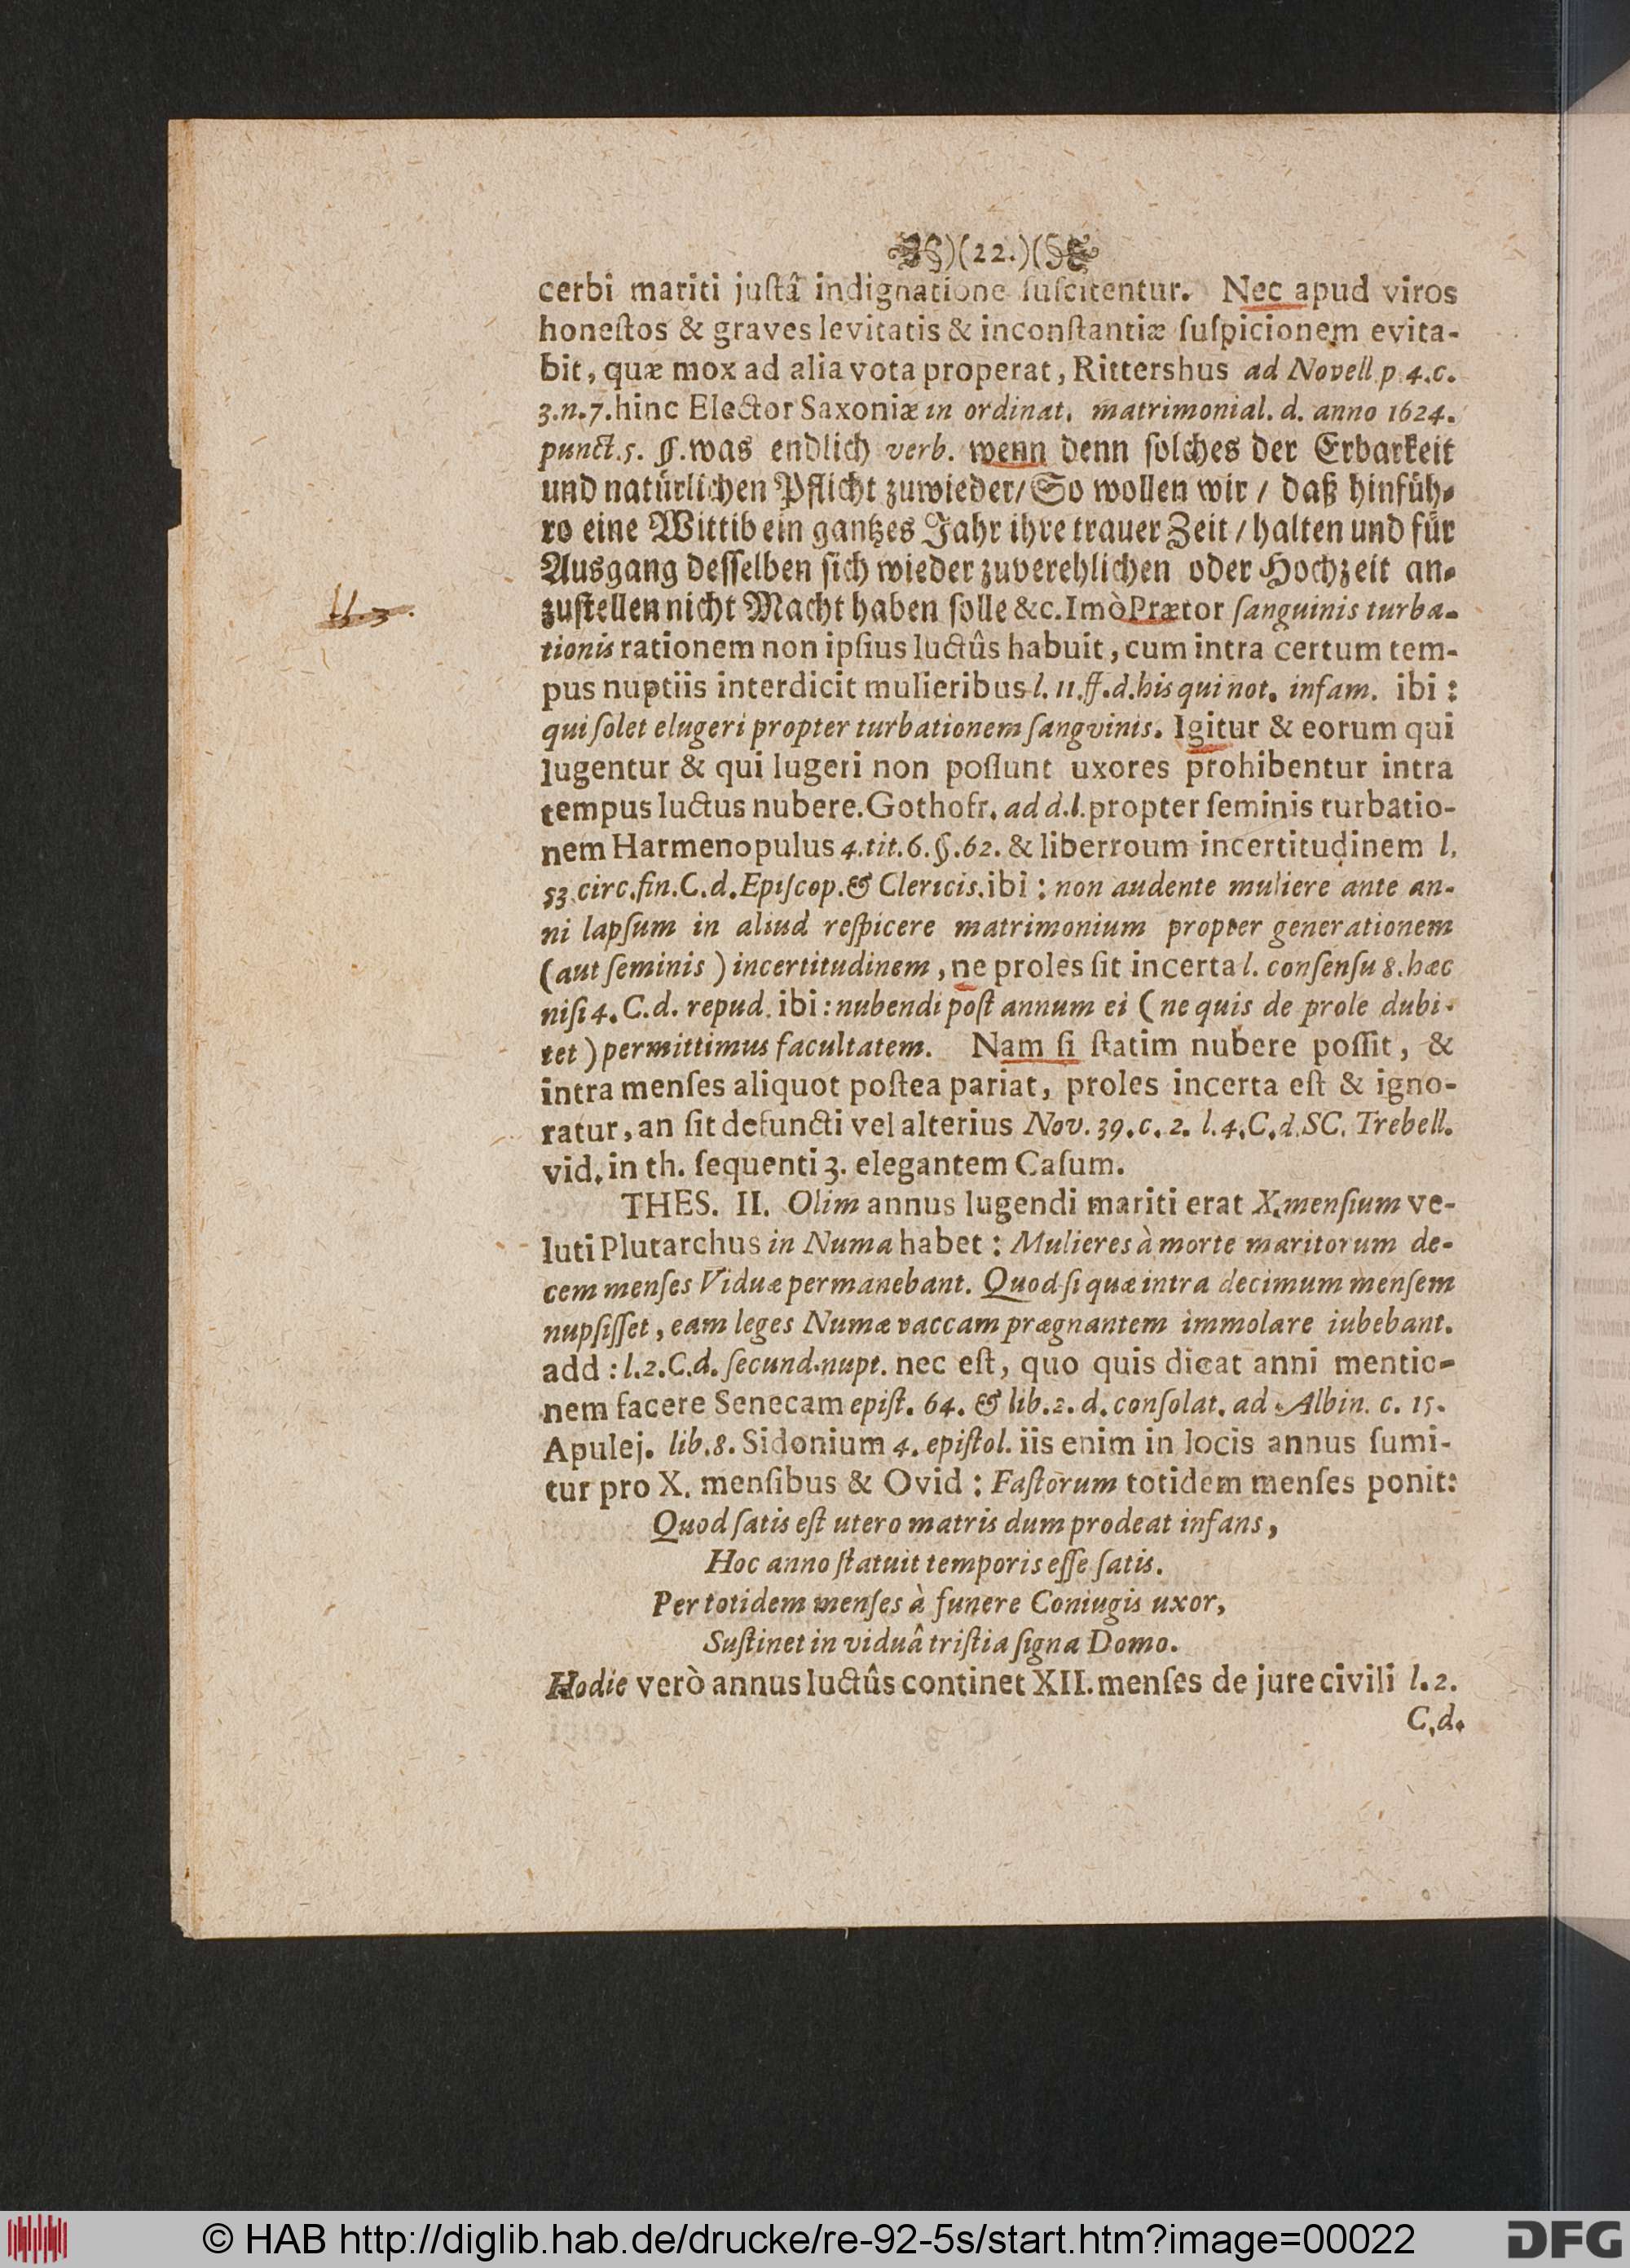 )(22.)(
cerbi mariti juſtâ indignatione ſuſcitentur. Nec apud viros
honeſtos & graves levitatis & inconſtantiæ ſuſpicionem evita-
bit, quæ mox ad alia vota properat, Rittershus ad Novell. p. 4. c.
3. n. 7. hinc Elector Saxoniæ in ordinat. matrimonial. d. anno 1624.
punct. 5. §. was endlich verb. wenn denn ſolches der Erbarkeit
und natürlichen Pflicht zuwieder/ So wollen wir / daß hinfüh-
ro eine Wittib ein gantzes Jahr ihre trauer Zeit / halten und für
Ausgang deſſelben ſich wieder zuverehlichen oder Hochzeit an-
zuſtellen nicht Macht haben ſolle &c. Imò Prætor ſanguinis turba-
tionis rationem non ipſius luctûs habuit, cum intra certum tem-
pus nuptiis interdicit mulieribus l. 11. ff. d. his qui not. infam. ibi :
qui ſolet elugeri propter turbationem ſangvinis. Igitur & eorum qui
lugentur & qui lugeri non poſſunt uxores prohibentur intra
tempus luctus nubere. Gothofr. ad d. l. propter ſeminis turbatio-
nem Harmenopulus 4. tit. 6. §. 62. & liberroum incertitudinem l.
53. circ. fin. C. d. Epiſcop. & Clericis. ibi : non audente muliere ante an-
ni lapſum in aliud reſpicere matrimonium propter generationem
(aut ſeminis ) incertitudinem, ne proles ſit incerta l. conſenſu 8. hæc
niſi 4. C. d. repud. ibi : nubendi poſt annum ei ( ne quis de prole dubi-
tet ) permittimus facultatem. Nam ſi ſtatim nubere poſſit, &
intra menſes aliquot poſtea pariat, proles incerta eſt & igno-
ratur, an ſit defuncti vel alterius Nov. 39. c. 2. l. 4. C. d. SC. Trebell.
vid. in th. ſequenti 3. elegantem Caſum.
THES. II. Olim annus lugendi mariti erat X. menſium ve-
luti Plutarchus in Numa habet : Mulieres à morte maritorum de-
cem menſes Viduæ permanebant. Quod ſi quæ intra decimum menſem
nupſiſſet, eam leges Numæ vaccam prægnantem immolare iubebant.
add : l. 2. C. d. ſecund. nupt. nec eſt, quo quis dicat anni mentio-
nem facere Senecam epiſt. 64. & lib. 2. d. conſolat. ad Albin. c. 15.
Apulej. lib. 8. Sidonium 4. epiſtol. iis enim in locis annus ſumi-
tur pro X. menſibus & Ovid : Faſtorum totidem menſes ponit:
Quod ſatis eſt utero matris dum prodeat infans,
Hoc anno ſtatuit temporis eſſe ſatis.
Per totidem menſes à funere Coniugis uxor,
Suſtinet in viduâ triſtia ſigna Domo.
Hodie verò annus luctûs continet XII. menſes de jure civili l. 2.
C. d.
© HAB http://diglib.hab.de/drucke/re-92-5s/start.htm?image=00022
DFG